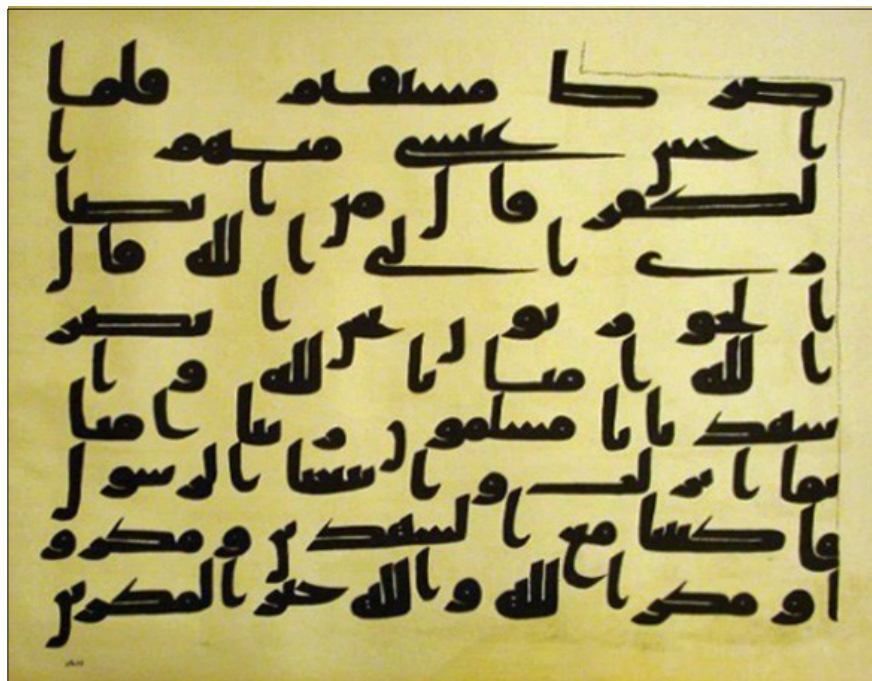 صرط مستقيم فلما
احس عيسى منهم ا
لكفر قال من انصا
رى الى الله قال
الحوريون نحن انصر
الله امنا بالله وا
شهد بانا مسلمون ربنا امنا
بما انزلت واتبعنا الرسول
فاكتبنا مع الشهدين ومكرو
ا ومكر الله والله خير المكرين